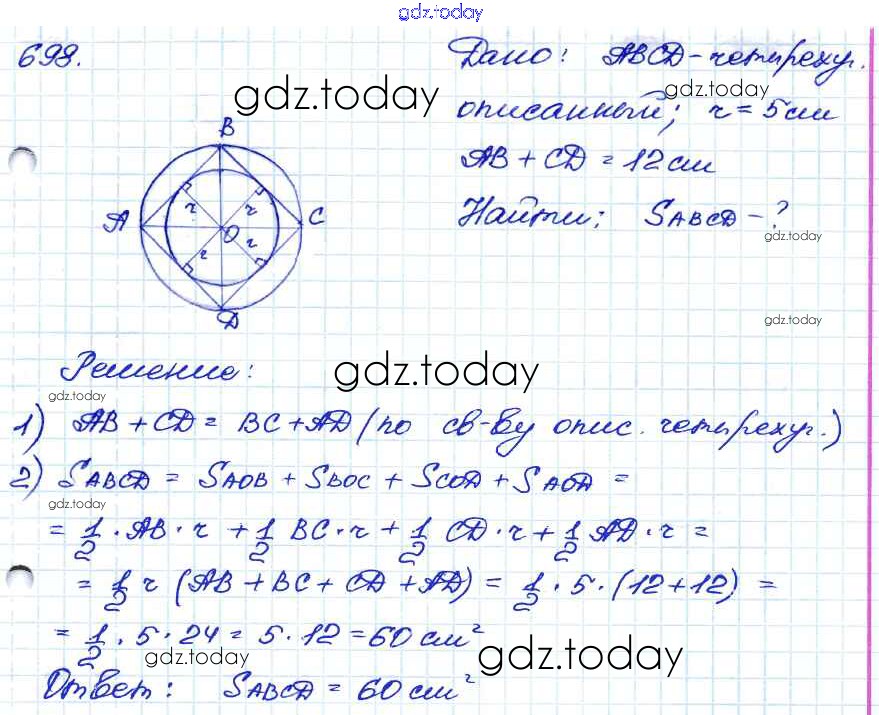 gdz.today
698.
Дано: ABCD - четырехуг.
gdz.today
gdz.today
описанный; r = 5 см
B
AB + CD = 12 см
A
r
r
C
Найти: SABCD - ?
O
gdz.today
r
r
D
gdz.today
Решение:
gdz.today
gdz.today
1) AB + CD = BC + AD (по св-ву опис. четырехуг.)
2) SABCD = SAOB + SBOC + SCOD + SAOD =
gdz.today
= 1/2 · AB · r + 1/2 BC · r + 1/2 CD · r + 1/2 AD · r =
= 1/2 r (AB + BC + CD + AD) = 1/2 · 5 · (12 + 12) =
= 1/2 · 5 · 24 = 5 · 12 = 60 см²
gdz.today
gdz.today
Ответ: SABCD = 60 см²